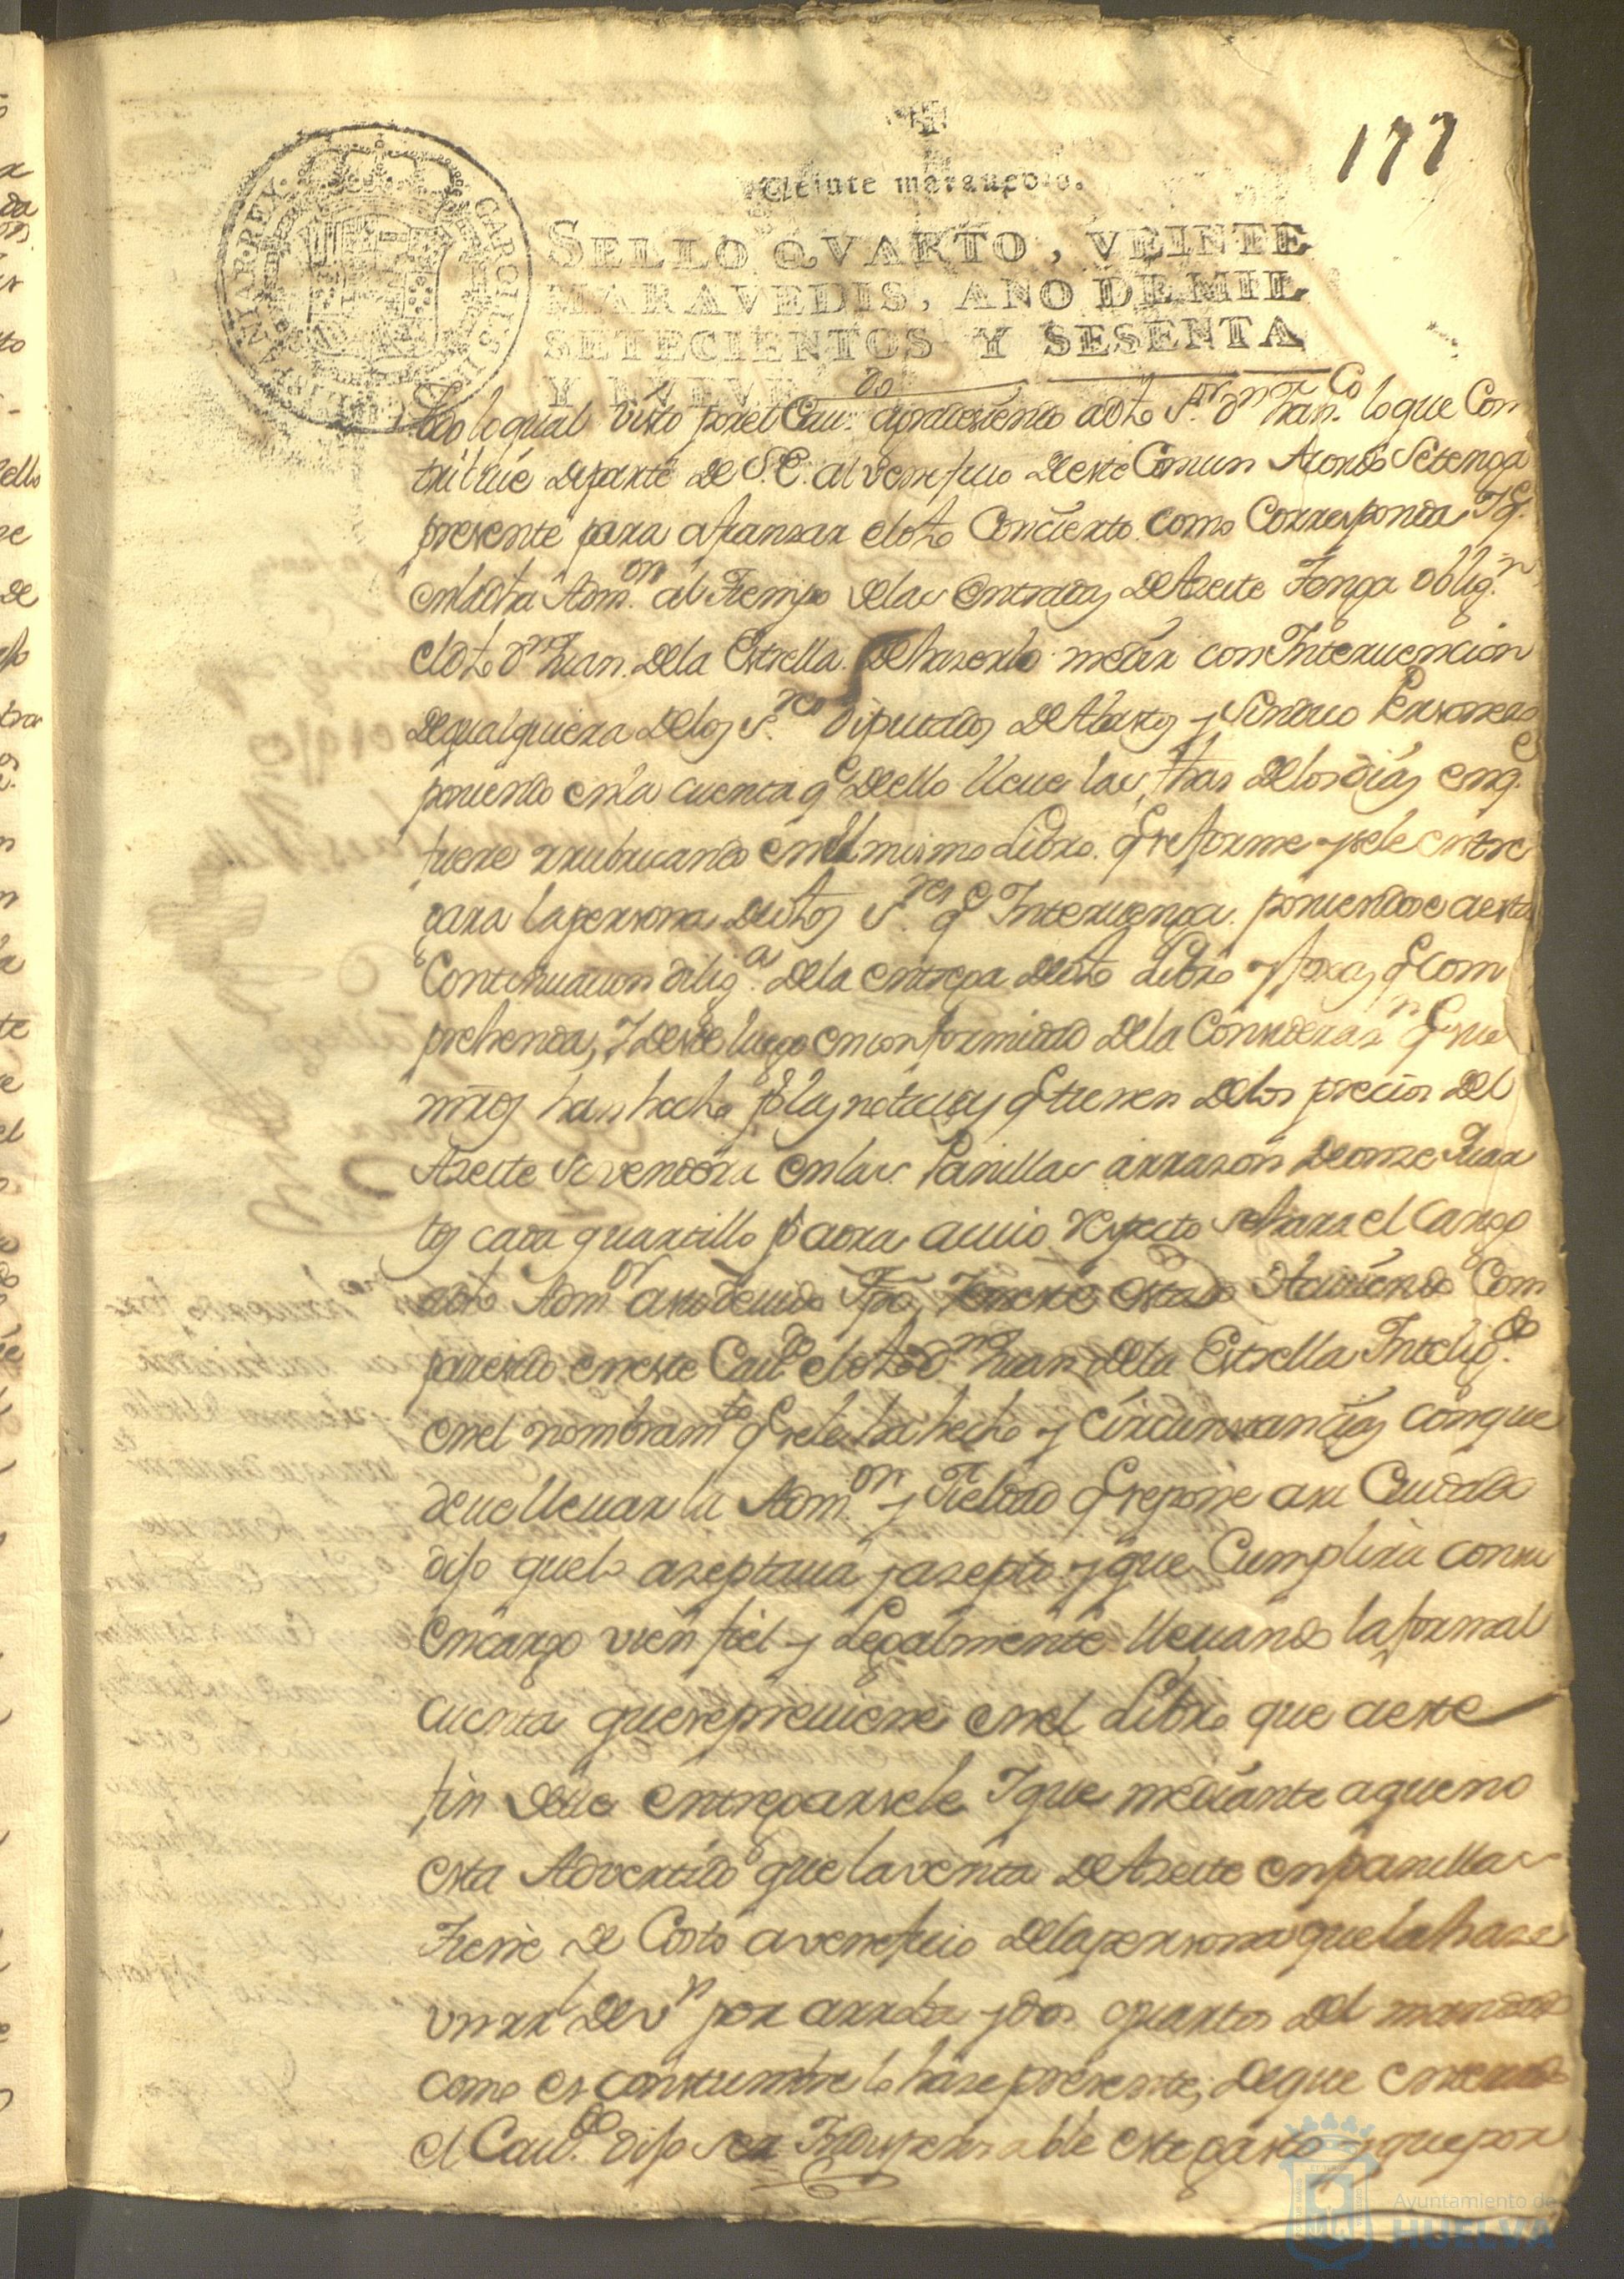 177
Veinte maravedis.
SELLO QVARTO, VEINTE
MARAVEDIS, AÑO DE MIL
SETECIENTOS Y SESENTA
Y NVEVE
CAROLVS III
HISPANIAR. REX.
todo lo qual visto por el Caudo. agradesiendo a dho Sor. Dn. Franco. lo que Con
tribuie departe de S.E. al venefisio deeste Comun Acordo Setenga
presente para afianzar el dho Concierto como Corresponda Y q.e
en la dha Admon. al Tiempo delas entradas de Azeite Tenga oblign.
el dho Dn. Juan dela Estrella de haserlo medir con Interuencion
de qualquiera delos Sres. Diputados de Abastos y Sindico Personero
poniendo en la cuenta q.e deello lleue las fhas delos dias en q.e
fuere rrubricando en el mismo Libro q.e se forme y sele entre
para la persona de dhos Sres. q.e Interuenga poniendose aesta
Continuacion dilig.a dela entrega de dho Libro y foxas q.e Com
prehenda, Y desde luego en conformidad dela Considerasn. q.e sus
mrds han hecho p.r las noticias q.e tienen delos precios del
Azeite se vendera en las Panillas arrazon de onze Quar
tos cada quartillo p.r aora a cuio respecto se hara el Cargo
a dho Admor. asu deuido Tpo, Y en este estado Hauiendo Com
paresido en este Caudo. el dho Dn. Juan dela Estrella Inteligdo.
en el nombramto. q.e sele ha hecho y Circunstancias con que
deue lleuar la Admon. y Fieldad q.e se pone a su Cuidado
dijo que lo aseptaua y asepto y que Cumplira con su
encargo vien fiel y Legalmente lleuando la formal
cuenta que se preuiene en el Libro que a este
fin deue entregarsele Y que mediante a que no
esta Advertido que la venta de Azeite en panillas
Tiene de Costo a venefisio dela persona que la hase
vn rrl de vn por arroba y dos quartos del mandado
como es constumbre lo hase presente, de que enterado
el Caudo. dijo ser Indispensable este gasto y que por
Ayuntamiento de
HUELVA